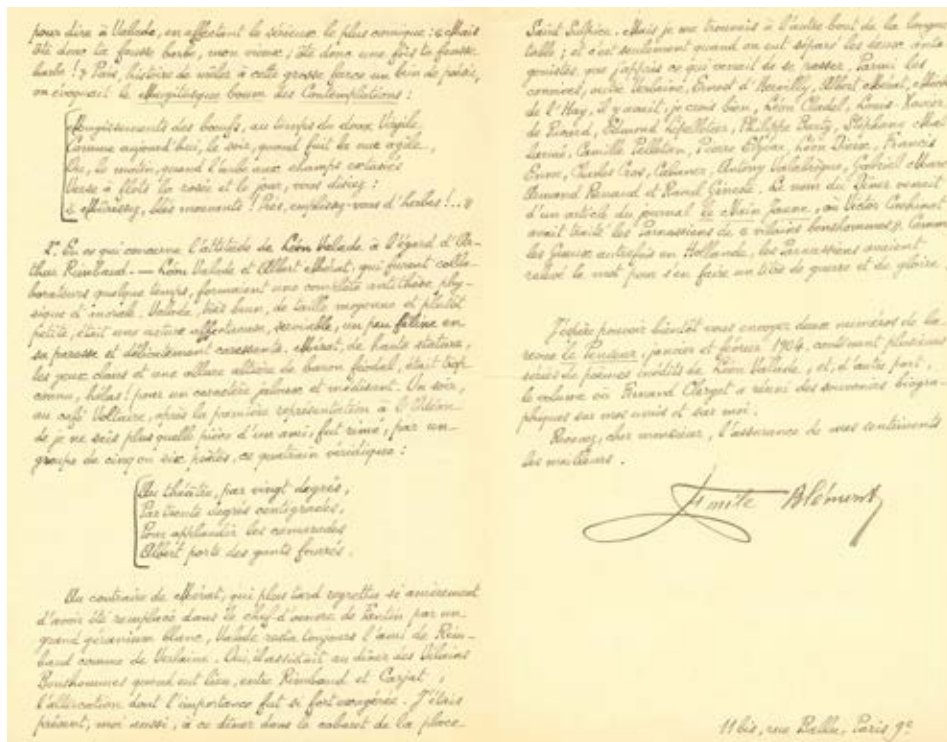 pour dire à Valade, en affectant le sérieux le plus comique : « Mais
ôte donc ta fausse barbe, mon vieux ; ôte donc une fois ta fausse
barbe ! » Puis, histoire de mêler à cette grosse farce un brin de poésie,
on évoquait le des Contemplations :
Mugissements des bœufs, au temps du doux Virgile,
Comme aujourd'hui, le soir, quand fuit la nue agile,
Ou, le matin, quand l'aube aux champs extasiés
Verse à flots la rosée et le jour, vous disiez :
« Mûrissez, blés mouvants ! Prés, emplissez-vous d'herbes !.. »
2.° En ce qui concerne l'attitude de Léon Valade à l'égard d'Ar-
thur Rimbaud. — Léon Valade et Albert Mérat, qui furent colla-
borateurs quelque temps, formaient une complète antithèse phy-
sique et morale. Valade, très brun, de taille moyenne et plutôt
petite, était une nature affectueuse, serviable, un peu féline en
sa paresse et délicatement caressante. Mérat, de haute stature,
les yeux clairs et une allure altière de baron féodal, était trop
connu, hélas ! pour un caractère jaloux et médisant. Un soir,
au café Voltaire, après la première représentation à l'Odéon
de je ne sais plus quelle pièce d'un ami, fut rimé, par un
groupe de cinq ou six poètes, ce quatrain véridique :
Au théâtre, par vingt degrés,
Par trente degrés centigrades,
Pour applaudir les camarades
Albert porte des gants fourrés.
Au contraire de Mérat, qui plus tard regretta si amèrement
d'avoir été remplacé dans le chef-d'œuvre de Fantin par un
grand géranium blanc, Valade resta toujours l'ami de Rim-
baud comme de Verlaine. Oui, il assistait au dîner des Vilains
Bonshommes quand eut lieu, entre Rimbaud et Carjat,
l'altercation dont l'importance fut si fort exagérée. J'étais
présent, moi aussi, à ce dîner dans le cabaret de la place
Saint Sulpice. Mais je me trouvais à l'autre bout de la longue
table ; et c'est seulement quand on eut séparé les deux anta-
gonistes, que j'appris ce qui venait de se passer. Parmi les
convives, outre Verlaine, Ernest d'Hervilly, Albert Mérat,
de l'Hay, il y avait, je crois bien, Léon Cladel, Louis-Xavier
de Ricard, Edmond Lepelletier, Philippe Burty, Stéphane Mal-
larmé, Camille Pelletan, Pierre Elzéar, Léon Dierx, Francis
Enne, Charles Cros, Cabaner, Antony Valabrègue, Gabriel
Armand Renaud et Raoul Gineste. Le nom du Dîner venait
d'un article du journal le Nain Jaune, où Victor Cochinat
avait traité les Parnassiens de « vilains bonshommes ». Comme
les Gueux autrefois en Hollande, les Parnassiens avaient
relevé le mot pour s'en faire un titre de guerre et de gloire.
J'espère pouvoir bientôt vous envoyer deux numéros de la
revue le Penseur, janvier et février 1904, contenant plusieurs
séries de poèmes inédits de Léon Valade, et, d'autre part,
le volume où Fernand Clerget a réuni des souvenirs biogra-
phiques sur mes amis et sur moi.
Recevez, cher monsieur, l'assurance de mes sentiments
les meilleurs.
Emile Blémont
11 bis, rue Ballu, Paris 9e